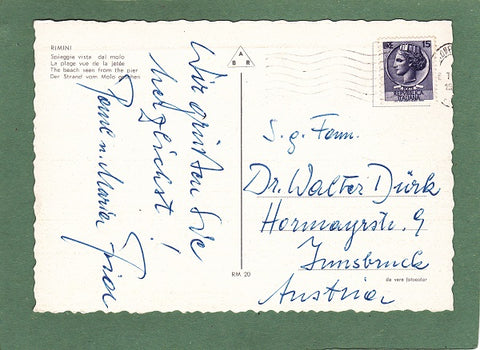 RIMINI
Spiaggia vista dal molo
La plage vue de la jetée
The beach seen from the pier
Der Strand vom Molo gesehen
A
B R
Wir grüßen Sie
herzlichst !
u. Maria
LIRE 15
REPUBBLICA
ITALIANA
S. g. Fam.
Dr. Walter Dürk
Hormayrstr. 9
Innsbruck
Austria
RM 20
da vera fotocolor